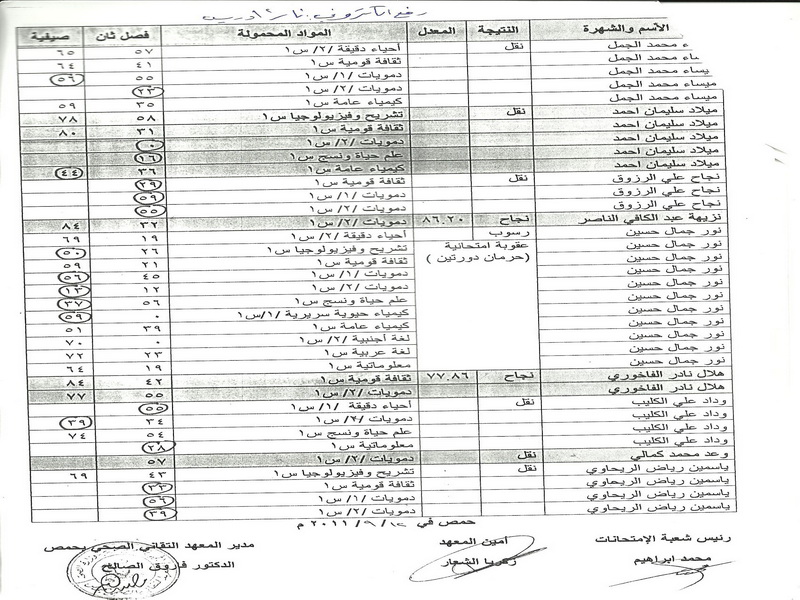 رفع الكتروني نادر ادريس
الأسم والشهرة النتيجة المعدل المواد المحمولة فصل ثان صيفية
ء محمد الجمل نقل أحياء دقيقة /٢/ س١ ٥٧ ٦٥
ساء محمد الجمل ثقافة قومية س١ ٤١ ٦٤
يساء محمد الجمل دمويات /١/ س١ ٥٥ ٥٦
ميساء محمد الجمل دمويات /٢/ س١ ٢٣
ميساء محمد الجمل كيمياء عامة س١ ٣٥ ٥٩
ميلاد سليمان احمد نقل تشريح وفيزيولوجيا س١ ٥٨ ٧٨
ميلاد سليمان احمد ثقافة قومية س١ ٣١ ٨٠
ميلاد سليمان احمد دمويات /٢/ س١ ٠
ميلاد سليمان احمد علم حياة ونسج س١ ١٦
ميلاد سليمان احمد كيمياء عامة س١ ٣٦ ٤٤
نجاح علي الرزوق نقل ثقافة قومية س١ ٢٩
نجاح علي الرزوق دمويات /١/ س١ ٥٩
نجاح علي الرزوق دمويات /٢/ س١ ٥٥
نزيهة عبد الكافي الناصر نجاح ٨٦.٢٠ دمويات /٢/ س١ ٣٢ ٨٤
نور جمال حسين رسوب أحياء دقيقة /٢/ س١ ١٩ ٦٩
نور جمال حسين عقوبة امتحانية تشريح وفيزيولوجيا س١ ٢٦ ٥٠
نور جمال حسين (حرمان دورتين ) ثقافة قومية س١ ٢١ ٥٩
نور جمال حسين دمويات /١/ س١ ٤٥ ٥٦
نور جمال حسين دمويات /٢/ س١ ١٢ ١٣
نور جمال حسين علم حياة ونسج س١ ٥٦ ٣٧
نور جمال حسين كيمياء حيوية سريرية /١/ س١ ٠ ٥٩
نور جمال حسين كيمياء عامة س١ ٣٩ ٥١
نور جمال حسين لغة أجنبية /٢/ س١ ٠ ٧٠
نور جمال حسين لغة عربية س١ ٢٣ ٧٢
نور جمال حسين معلوماتية س١ ١٩ ٦٤
هلال نادر الفاخوري نجاح ٧٧.٨٦ ثقافة قومية س١ ٤٢ ٨٤
هلال نادر الفاخوري دمويات /٢/ س١ ٥٥ ٧٧
وداد علي الكليب نقل أحياء دقيقة /١/ س١ ٥٥
وداد علي الكليب دمويات /٢/ س١ ٣٤ ٣٩
وداد علي الكليب علم حياة ونسج س١ ٥٤ ٧٤
وداد علي الكليب معلوماتية س١ ٢٨
وعد محمد كمالي نقل دمويات /٢/ س١ ٥٧
ياسمين رياض الريحاوي نقل تشريح وفيزيولوجيا س١ ٤٣ ٦٩
ياسمين رياض الريحاوي ثقافة قومية س١
ياسمين رياض الريحاوي دمويات /١/ س١ ٥٦
ياسمين رياض الريحاوي دمويات /٢/ س١ ٣٩
حمص في ١٢/ ٩/ ٢٠١١ م
رئيس شعبة الإمتحانات أمين المعهد مدير المعهد التقاني الصحي بحمص
محمد ابراهيم زكريا الشعار الدكتور فاروق الصالح